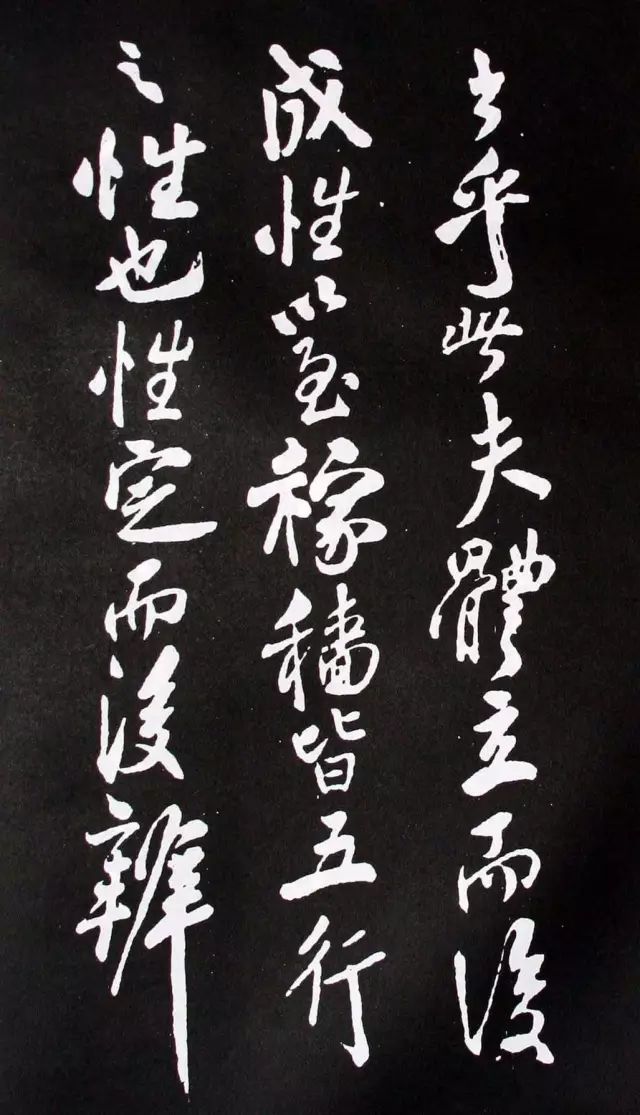 乎此夫體立而後
成性以至稼穡皆五行
之性也性定而後辨